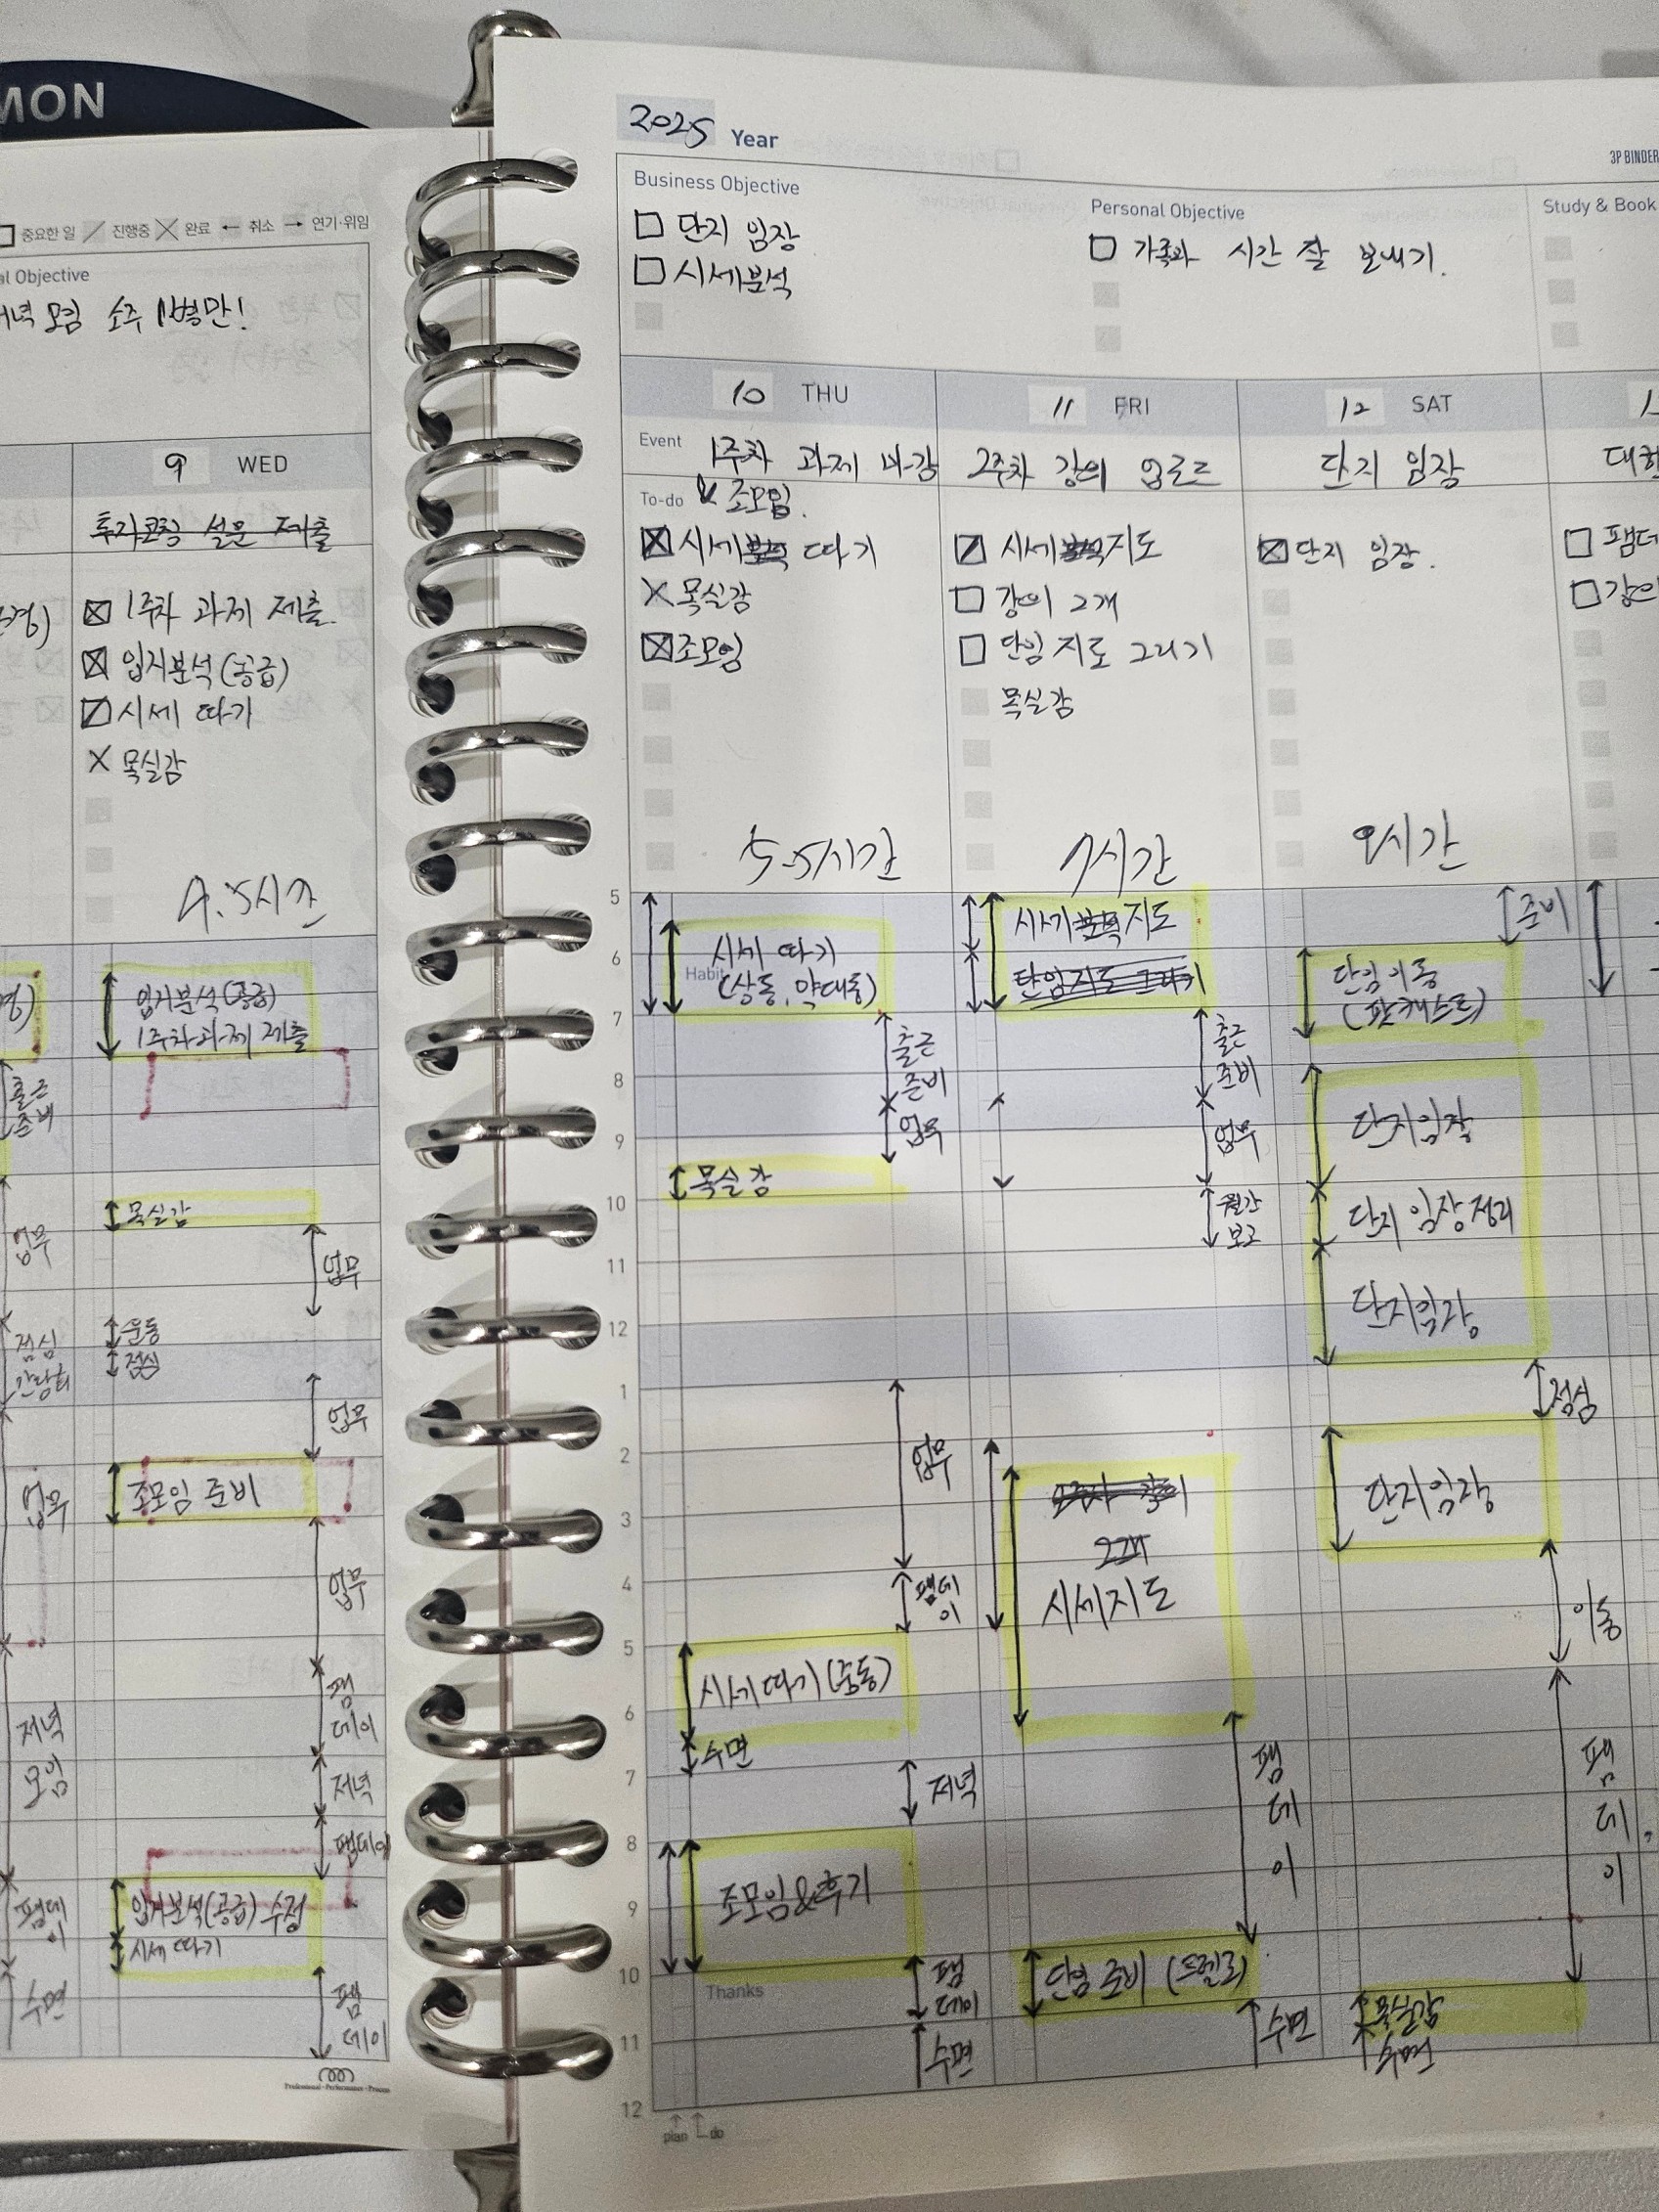 MON
중요한 일 진행중 완료 ← 취소 → 연기·위임
al Objective
저녁 모임 소주 1병만!
9 WED
투자코칭 설문 제출
1주차 과제 제출
입지분석(공급)
시세 따기
목실감
4.5시간
입지분석(공급)
1주차 과제 제출
출근
준비
목실감
업무
업무
운동
점심
점심
간담회
업무
업무
조모임 준비
업무
팸
데이
저녁
모임
저녁
팸데이
입지분석(공급) 수정
시세 따기
팸데
이
수면
팸
데이
Professional·Performance·Process
2025 Year
3P BINDER
Business Objective
단지 임장
시세분석
Personal Objective
가족과 시간 잘 보내기.
Study & Book
10 THU
11 FRI
12 SAT
Event
1주차 과제 마감
2주차 강의 업로드
단지 임장
To-do
조모임.
시세분석 따기
목실감
조모임
시세분석지도
강의 2개
단임 지도 그리기
목실감
단지 임장.
팸데
강의
5.5시간
7시간
9시간
5
6
7
8
9
10
11
12
1
2
3
4
5
6
7
8
9
10
11
12
Habit
시세 따기
(상동, 약대동)
출근
준비
업무
목실감
업무
팸데
이
시세따기(중동)
수면
저녁
조모임&후기
Thanks
팸
데이
수면
plan do
시세분석지도
단임지도 그리기
출근
준비
업무
월간
보고
2개
시세지도
팸
데
이
단임 준비 (트렐로)
수면
준비
단임이동
(팟캐스트)
단지임장
단지 임장 정리
단지임장
점심
단지임장
이동
팸
데
이
목실감
수면